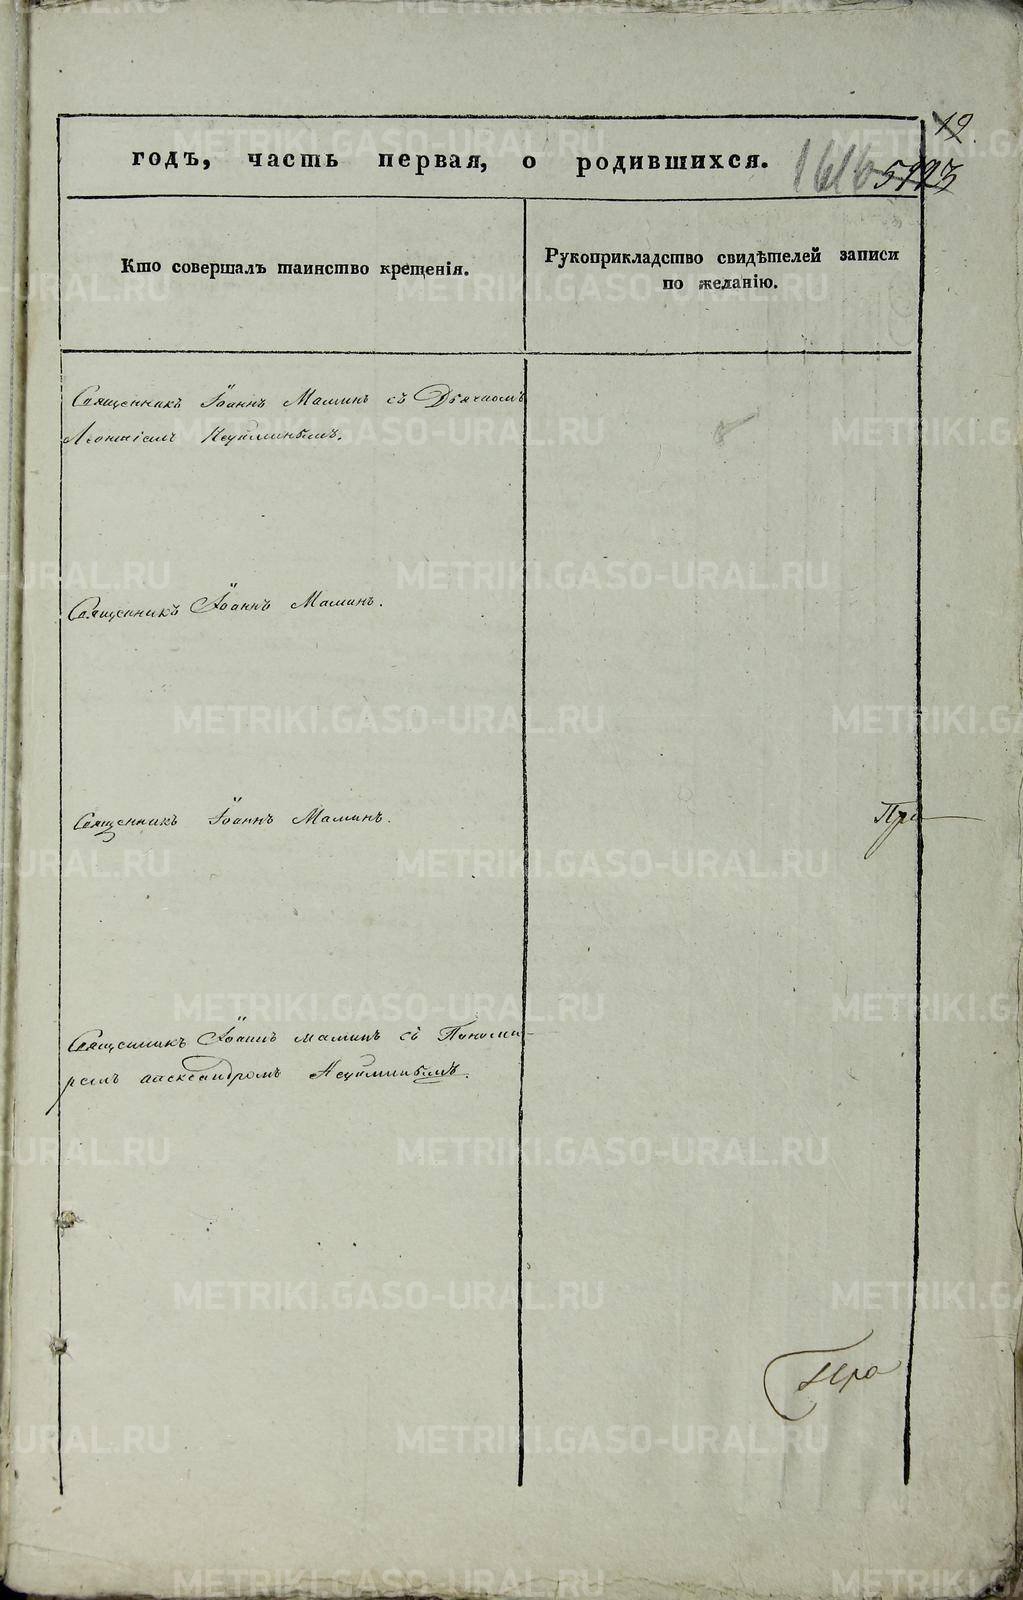 12
годъ, часть первая, о родившихся.
1616
Кто совершалъ таинство крещенія.
Рукоприкладство свидѣтелей записи
по желанію.
Священникъ Іоаннъ Маминъ съ Дьячкомъ
Леонтіемъ
Священникъ Іоаннъ Маминъ.
Священникъ Іоаннъ Маминъ.
При
Священникъ Іоаннъ Маминъ съ Понома-
ремъ Александромъ
METRIKI.GASO-URAL.RU